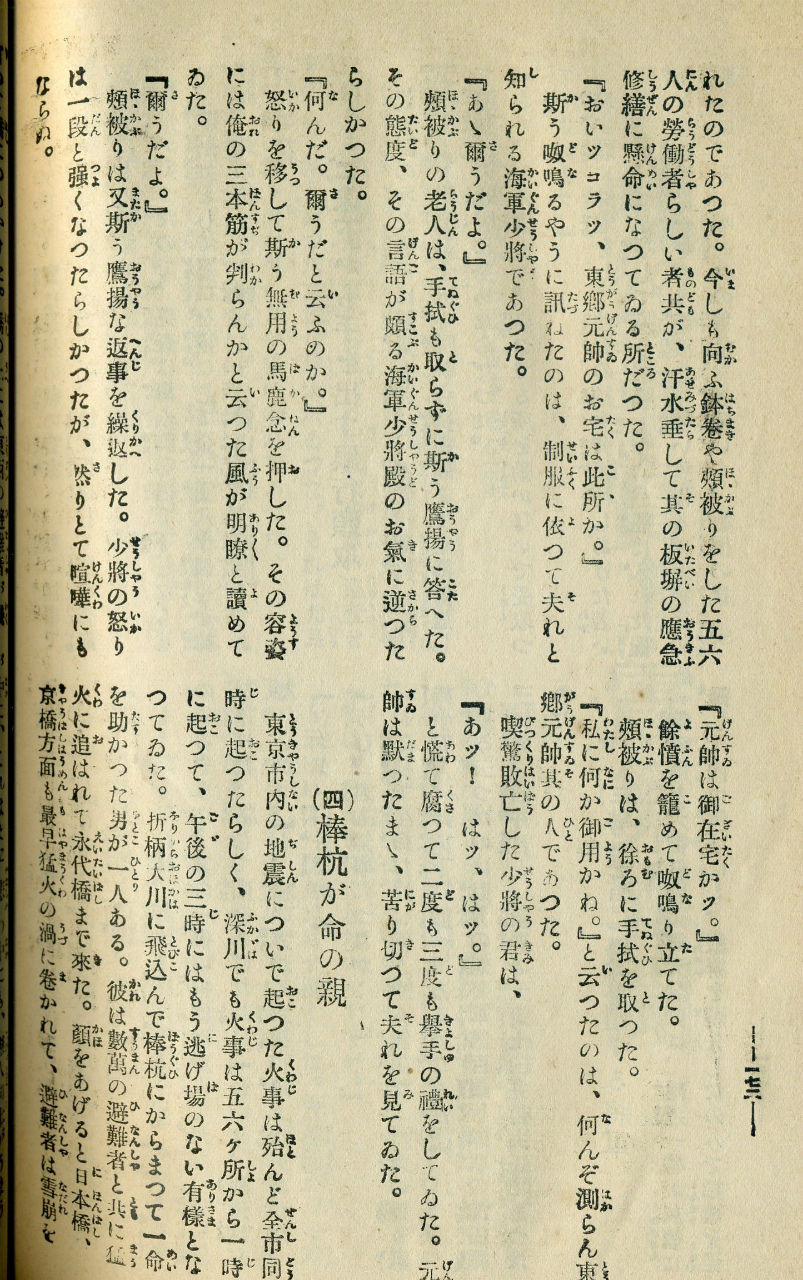 れたのであつた。今しも向ふ鉢巻や頰被りをした五六
人の勞働者らしい者共が、汗水垂して其の板塀の應急
修繕に懸命になつてゐる所だつた。
『おいッコラッ、東鄕元帥のお宅は此所か。』
斯う呶鳴るやうに訊ねたのは、制服に依つて夫れと
知られる海軍少將であつた。
『あゝ爾うだよ。』
頰被りの老人は、手拭も取らずに斯う鷹揚に答へた。
その態度、その言語が頗る海軍少將殿のお氣に逆つた
らしかつた。
『何んだ。爾うだと云ふのか。』
怒りを移して斯う無用の馬鹿念を押した。その容姿
には俺の三本筋が判らんかと云つた風が明瞭と讀めて
ゐた。
『爾うだよ。』
頰被りは又斯う鷹揚な返事を繰返した。少將の怒り
は一段と强くなつたらしかつたが、然りとて喧嘩にも
ならぬ。
『元帥は御在宅かッ。』
餘憤を籠めて呶鳴り立てた。
頰被りは、徐ろに手拭を取つた。
『私に何か御用かね。』と云つたのは、何んぞ測らん東
鄕元帥其の人であつた。
喫驚敗亡した少將の君は、
『あッ！ はッ、はッ。』
と慌て腐つて二度も三度も擧手の禮をしてゐた。元
帥は默つたまゝ、苦り切つて夫れを見てゐた。
(四)棒杭が命の親
東京市內の地震についで起つた火事は殆んど全市同
時に起つたらしく、深川でも火事は五六ヶ所から一時
に起つて、午後の三時にはもう逃げ場のない有樣とな
つてゐた。折柄大川に飛込んで棒杭にからまつて一命
を助かつた男が一人ある。彼は數萬の避難者と共に猛
火に追はれて永代橋まで來た。顏をあげると日本橋、
京橋方面も最早猛火の渦に卷かれて、避難者は雪崩を
―一七六―